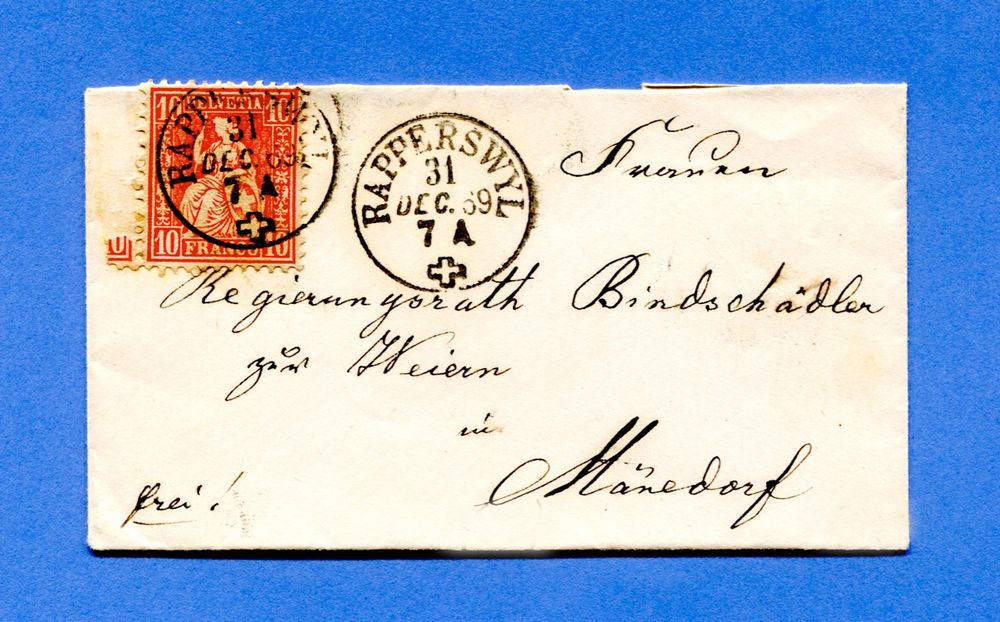 10 HELVETIA 10
10 FRANCO 10
RAPP
31
DEC. 69
7 A
RAPPERSWYL
31
DEC. 69
7 A
Frauen
Regierungsrath Bindschädler
zur Weiern
in
Mänedorf
frei!